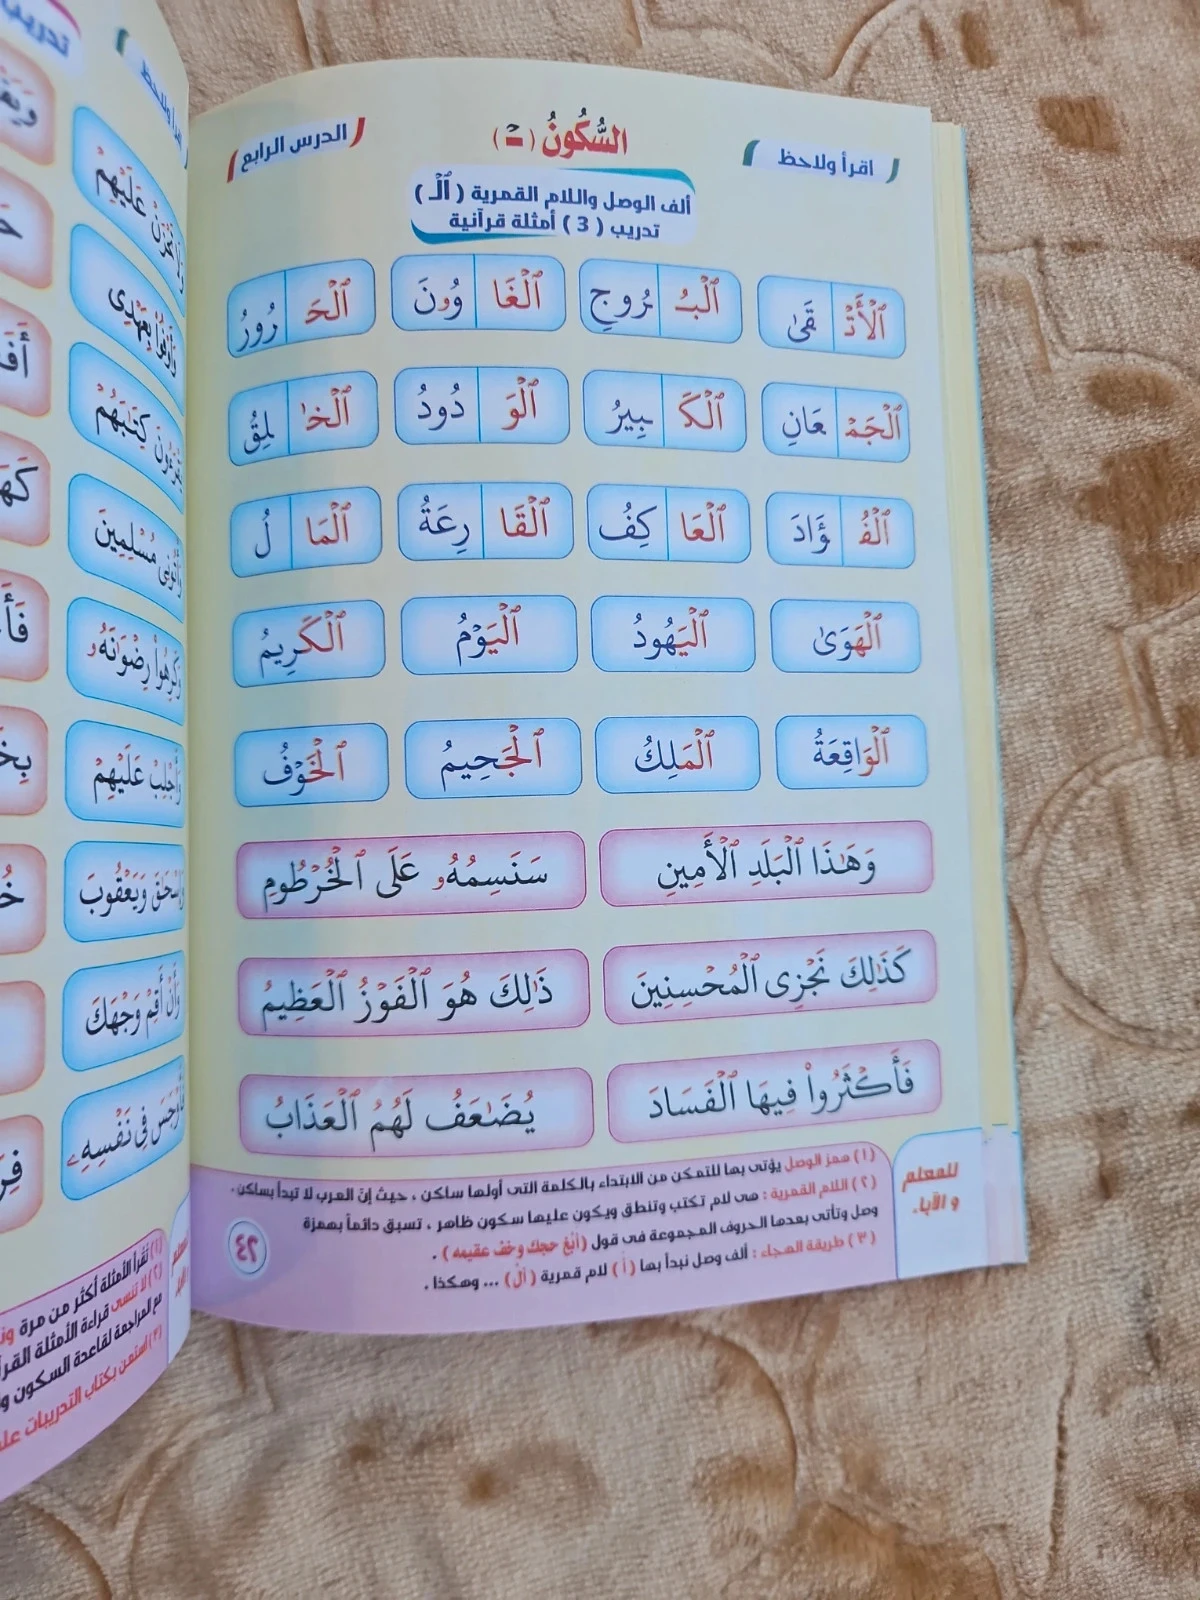 اقرأ ولاحظ
السُّكُونُ ( ـْ )
الدرس الرابع
ألف الوصل واللام القمرية ( ٱلْـ )
تدريب ( 3 ) أمثلة قرآنية
ٱلْأَتْ قَىٰ ٱلْبُـ ـرُوجِ ٱلْغَا وُۥنَ ٱلْحَـ ـرُورُ
ٱلْجَمْـ ـعَانِ ٱلْكَـ ـبِيرُ ٱلْوَ دُودُ ٱلْخَـٰ ـلِقُ
ٱلْفُـ ـؤَادَ ٱلْعَا كِفُ ٱلْقَا رِعَةُ ٱلْمَا لُ
ٱلْهَوَىٰ ٱلْيَهُودُ ٱلْيَوْمُ ٱلْكَرِيمُ
ٱلْوَاقِعَةُ ٱلْمَلِكُ ٱلْجَحِيمُ ٱلْخَوْفُ
وَهَـٰذَا ٱلْبَلَدِ ٱلْأَمِينِ سَنَسِمُهُۥ عَلَى ٱلْخُرْطُومِ
كَذَٰلِكَ نَجْزِى ٱلْمُحْسِنِينَ ذَٰلِكَ هُوَ ٱلْفَوْزُ ٱلْعَظِيمُ
فَأَكْثَرُوا۟ فِيهَا ٱلْفَسَادَ يُضَـٰعَفُ لَهُمُ ٱلْعَذَابُ
للمعلم
و الآباء
(١) همز الوصل يؤتى بها للتمكن من الابتداء بالكلمة التى أولها ساكن ، حيث إن العرب لا تبدأ بساكن .
(٢) اللام القمرية : هى لام تكتب وتنطق ويكون عليها سكون ظاهر ، تسبق دائماً بهمزة
وصل وتأتى بعدها الحروف المجموعة فى قول (أبغ حجك وخف عقيمه ) .
(٣) طريقة الهجاء : ألف وصل نبدأ بها (أَ) لام قمرية (أَلْ) ... وهكذا .
٤٢
عَلَيْهِمْ
بِعَهْدِى
كِتَـٰبَهُمْ
مُسْلِمِينَ
رِضْوَٰنَهُۥ
عَلَيْهِمْ
وَيَعْقُوبَ
وَأَنْ أَقِمْ وَجْهَكَ
فِى نَفْسِهِۦ
(١) تُقرأ الأمثلة أكثر من مرة
(٢) لا تنسى قراءة الأمثلة
مع المراجعة لقاعدة السكون
(٣) استعن بكتاب التدريبات